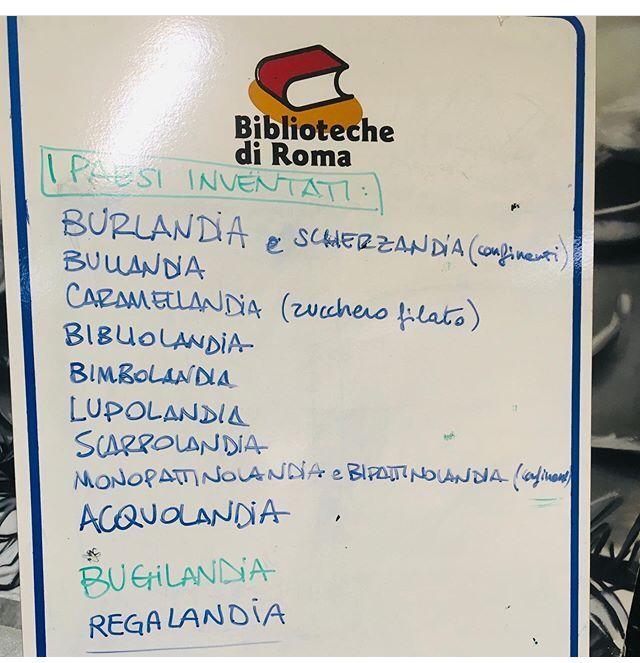 Biblioteche
di Roma
I PAESI INVENTATI:
BURLANDIA e SCHERZANDIA (confinenti)
BULLANDIA
CARAMELLANDIA (zucchero filato)
BIBLIOLANDIA
BIMBOLANDIA
LUPOLANDIA
SCARPOLANDIA
MONOPATTINOLANDIA e BIPATTINOLANDIA
ACQUOLANDIA
BUGILANDIA
REGALANDIA